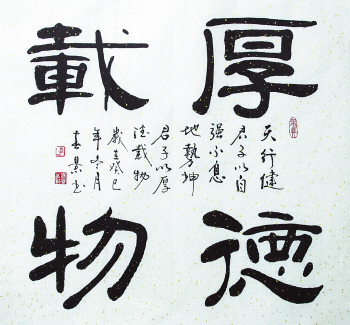 厚德
載物
天行健
君子以自
强不息
地勢坤
君子以厚
德載物
歲在癸巳
年冬月
书